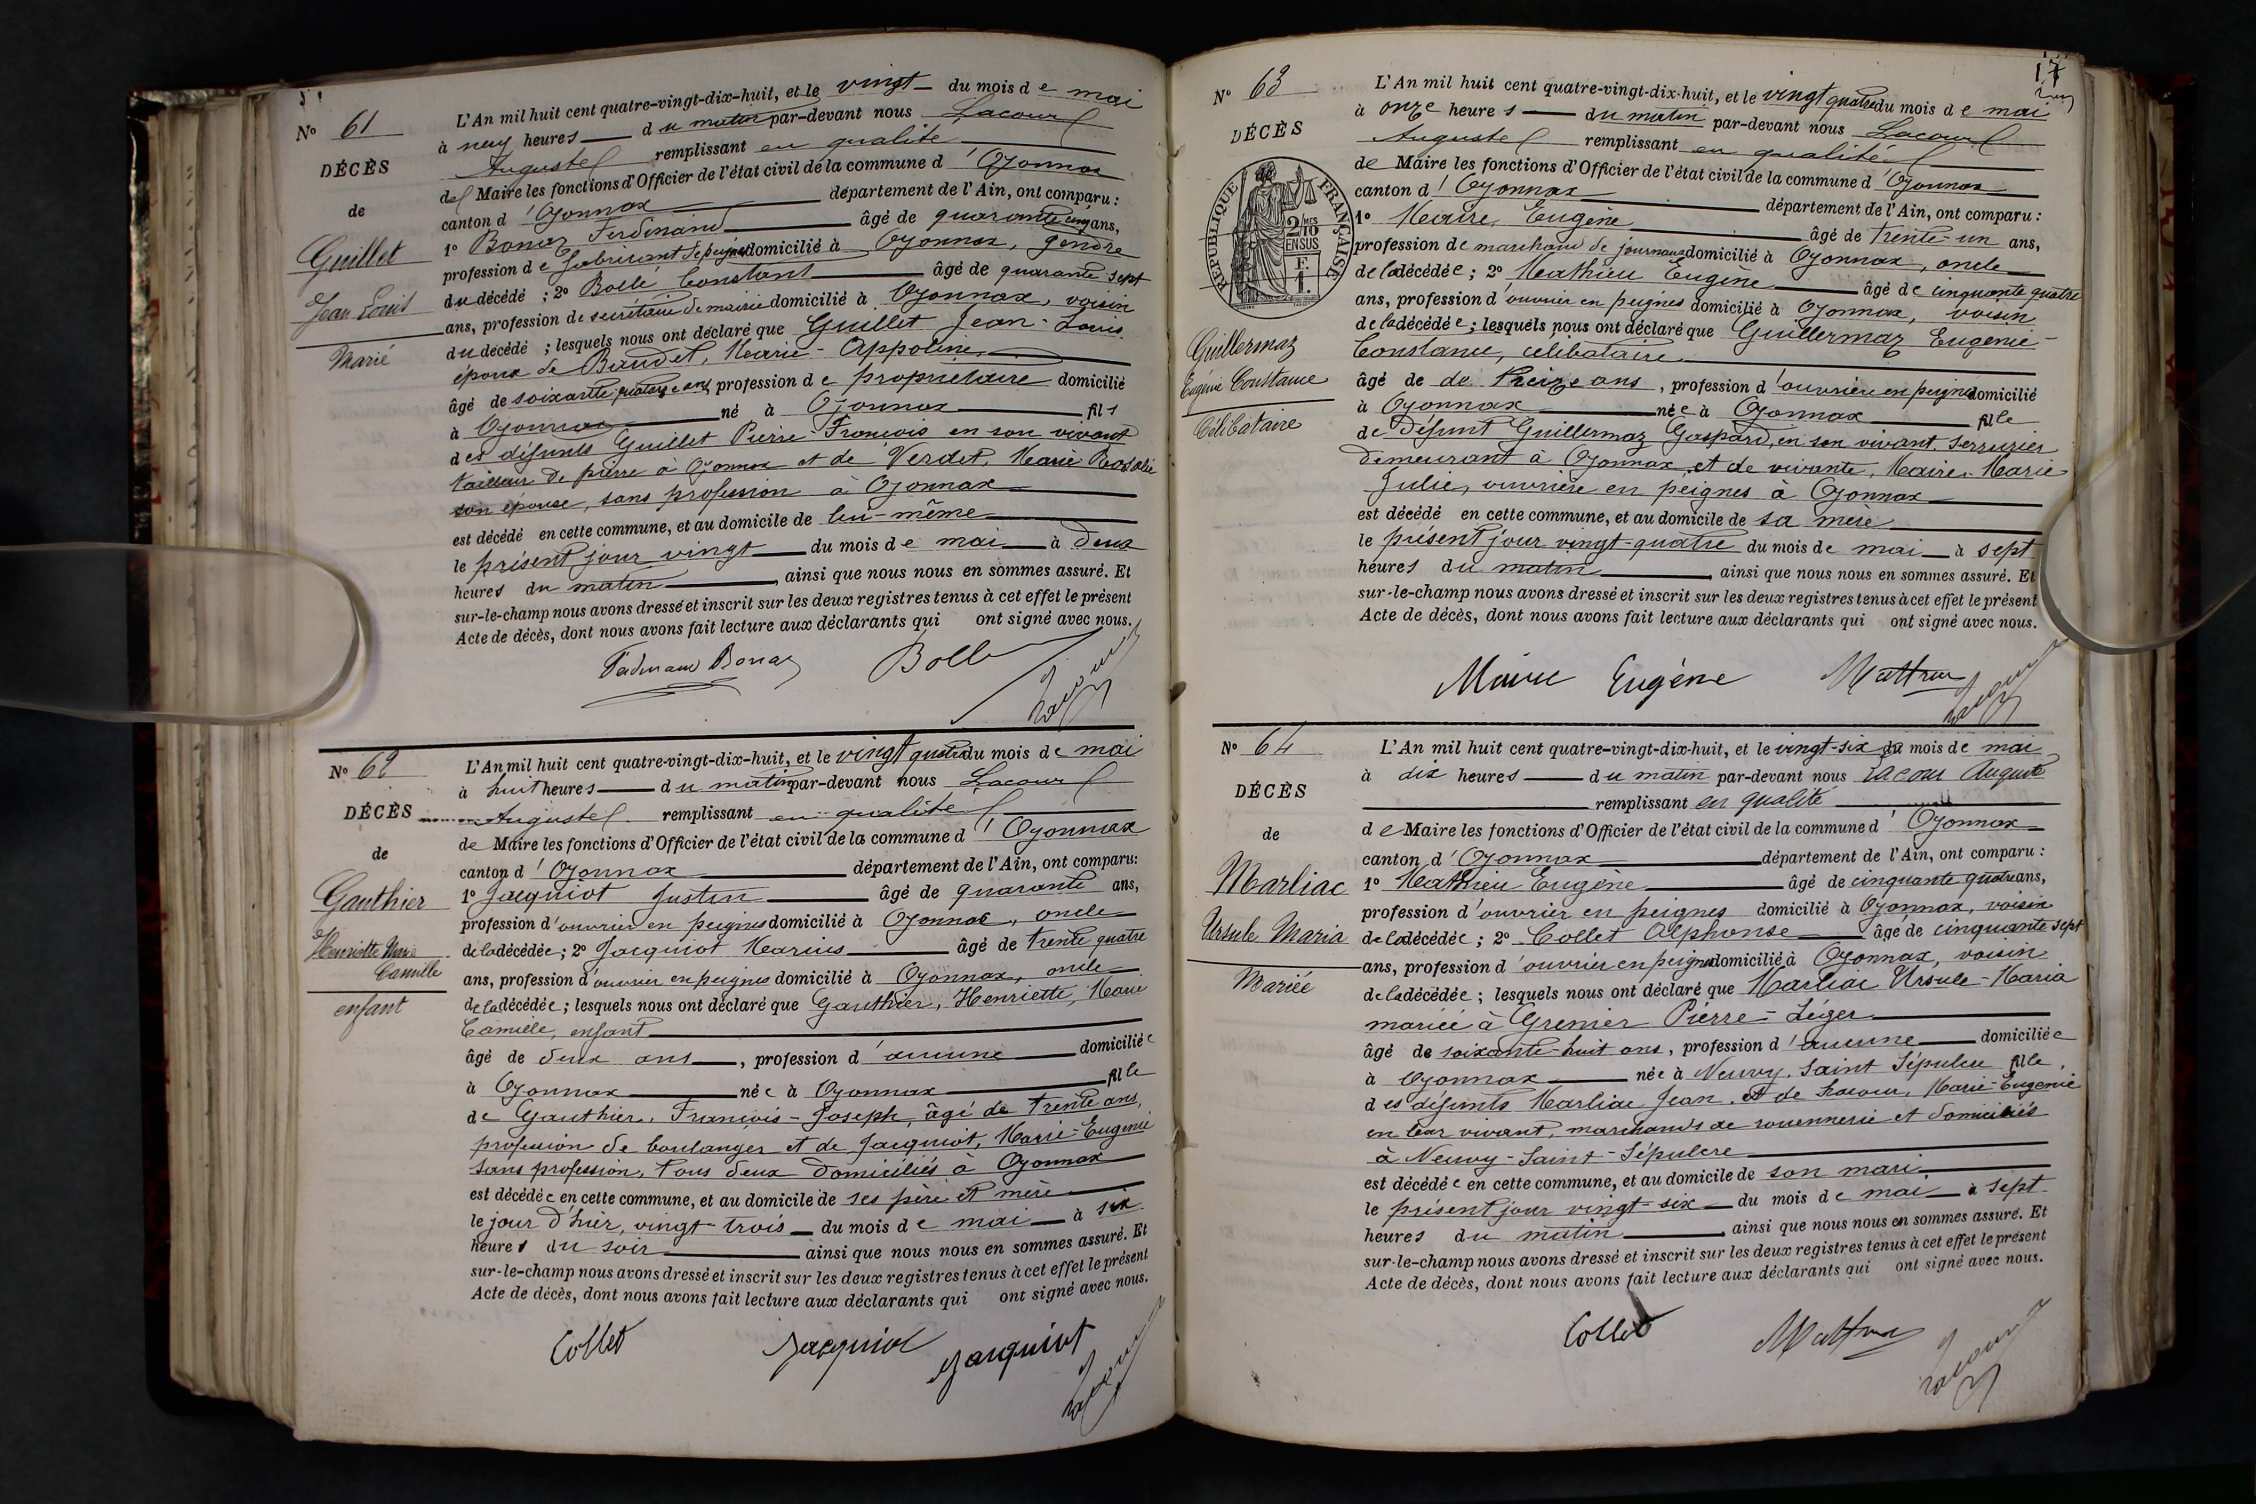 N° 61
DÉCÈS
de
Guillet
Jean Louis
Marié
L'An mil huit cent quatre-vingt-dix-huit, et le vingt du mois de mai
à neuf heures du matin par-devant nous Lacour
Auguste remplissant en qualité
de Maire les fonctions d'Officier de l'état civil de la commune d'Oyonnax
canton d'Oyonnax département de l'Ain, ont comparu :
1° Bonaz Ferdinand âgé de quarante cinq ans,
profession de fabricant de peignes domicilié à Oyonnax, gendre
du décédé ; 2° Bollé Constant âgé de quarante sept
ans, profession de secrétaire de mairie domicilié à Oyonnax, voisin
du décédé ; lesquels nous ont déclaré que Guillet Jean-Louis
époux de Baudet, Marie-Appoline
âgé de soixante quatorze ans, profession de propriétaire domicilié
à Oyonnax né à Oyonnax fils
des défunts Guillet Pierre-François en son vivant
tailleur de pierre à Oyonnax et de Verdet, Marie Rosalie
son épouse, sans profession à Oyonnax
est décédé en cette commune, et au domicile de lui-même
le présent jour vingt du mois de mai à deux
heures du matin, ainsi que nous nous en sommes assuré. Et
sur-le-champ nous avons dressé et inscrit sur les deux registres tenus à cet effet le présent
Acte de décès, dont nous avons fait lecture aux déclarants qui ont signé avec nous.
Ferdinand Bonaz Bollé Lacour
N° 62
DÉCÈS
de
Gauthier
Henriette Marie
Camille
enfant
L'An mil huit cent quatre-vingt-dix-huit, et le vingt quatre du mois de mai
à huit heures du matin par-devant nous Lacour
Auguste remplissant en qualité
de Maire les fonctions d'Officier de l'état civil de la commune d'Oyonnax
canton d'Oyonnax département de l'Ain, ont comparu :
1° Jacquiot Justin âgé de quarante ans,
profession d'ouvrier en peignes domicilié à Oyonnax, oncle
de la décédée ; 2° Jacquiot Marius âgé de trente quatre
ans, profession d'ouvrier en peignes domicilié à Oyonnax, oncle
de la décédée ; lesquels nous ont déclaré que Gauthier, Henriette, Marie
Camille, enfant
âgé de deux ans, profession d'aucune domiciliée
à Oyonnax née à Oyonnax fille
de Gauthier, François-Joseph, âgé de trente ans,
profession de boulanger et de Jacquiot, Marie-Eugénie
sans profession, tous deux domiciliés à Oyonnax
est décédée en cette commune, et au domicile de ses père et mère
le jour d'hier, vingt-trois du mois de mai à six
heures du soir ainsi que nous nous en sommes assuré. Et
sur-le-champ nous avons dressé et inscrit sur les deux registres tenus à cet effet le présent
Acte de décès, dont nous avons fait lecture aux déclarants qui ont signé avec nous.
Collet Jacquiot Jacquiot Lacour
17
N° 63
DÉCÈS
RÉPUBLIQUE FRANÇAISE
2/10 MES
EN SUS
F.
1.
Guillermaz
Eugénie Constance
Célibataire
L'An mil huit cent quatre-vingt-dix-huit, et le vingt quatre du mois de mai
à onze heures du matin par-devant nous Lacour
Auguste remplissant en qualité
de Maire les fonctions d'Officier de l'état civil de la commune d'Oyonnax
canton d'Oyonnax département de l'Ain, ont comparu :
1° Maire, Eugène âgé de trente-un ans,
profession de marchand de journaux domicilié à Oyonnax, oncle
de la décédée ; 2° Mathieu Eugène âgé de cinquante quatre
ans, profession d'ouvrier en peignes domicilié à Oyonnax, voisin
de la décédée ; lesquels nous ont déclaré que Guillermaz Eugénie-
Constance, célibataire
âgé de de treize ans, profession d'ouvrière en peignes domicilié
à Oyonnax née à Oyonnax fille
de défunt Guillermaz Gaspard, en son vivant serrurier
demeurant à Oyonnax et de vivante, Maire, Marie
Julie, ouvrière en peignes à Oyonnax
est décédé en cette commune, et au domicile de sa mère
le présent jour vingt-quatre du mois de mai à sept
heures du matin, ainsi que nous nous en sommes assuré. Et
sur-le-champ nous avons dressé et inscrit sur les deux registres tenus à cet effet le présent
Acte de décès, dont nous avons fait lecture aux déclarants qui ont signé avec nous.
Maire Eugène Mathieu Lacour
N° 64
DÉCÈS
de
Marliac
Ursule Maria
Mariée
L'An mil huit cent quatre-vingt-dix-huit, et le vingt-six du mois de mai
à dix heures du matin par-devant nous Lacour Auguste
remplissant en qualité
de Maire les fonctions d'Officier de l'état civil de la commune d'Oyonnax
canton d'Oyonnax département de l'Ain, ont comparu :
1° Mathieu Eugène âgé de cinquante quatre ans,
profession d'ouvrier en peignes domicilié à Oyonnax, voisin
de la décédée ; 2° Collet Alphonse âgé de cinquante sept
ans, profession d'ouvrier en peignes domicilié à Oyonnax, voisin
de la décédée ; lesquels nous ont déclaré que Marliac Ursule-Maria
mariée à Grenier Pierre-Léger
âgé de soixante-huit ans, profession d'aucune domiciliée
à Oyonnax née à Neuvy-Saint Sépulcre fille
des défunts Marliac Jean, et de Marie-Eugénie
en leur vivant, marchands de rouennerie et domiciliés
à Neuvy-Saint-Sépulcre
est décédée en cette commune, et au domicile de son mari
le présent jour vingt-six du mois de mai à sept
heures du matin, ainsi que nous nous en sommes assuré. Et
sur-le-champ nous avons dressé et inscrit sur les deux registres tenus à cet effet le présent
Acte de décès, dont nous avons fait lecture aux déclarants qui ont signé avec nous.
Collet Mathieu Lacour